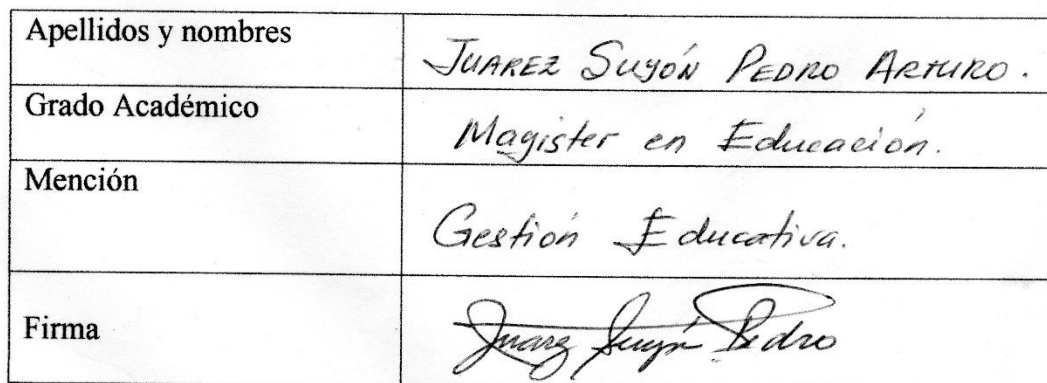 Apellidos y nombres
JUAREZ SUYÓN PEDRO ARTURO.
Grado Académico
Magister en Educación.
Mención
Gestión Educativa.
Firma
Juarez Suyón Pedro